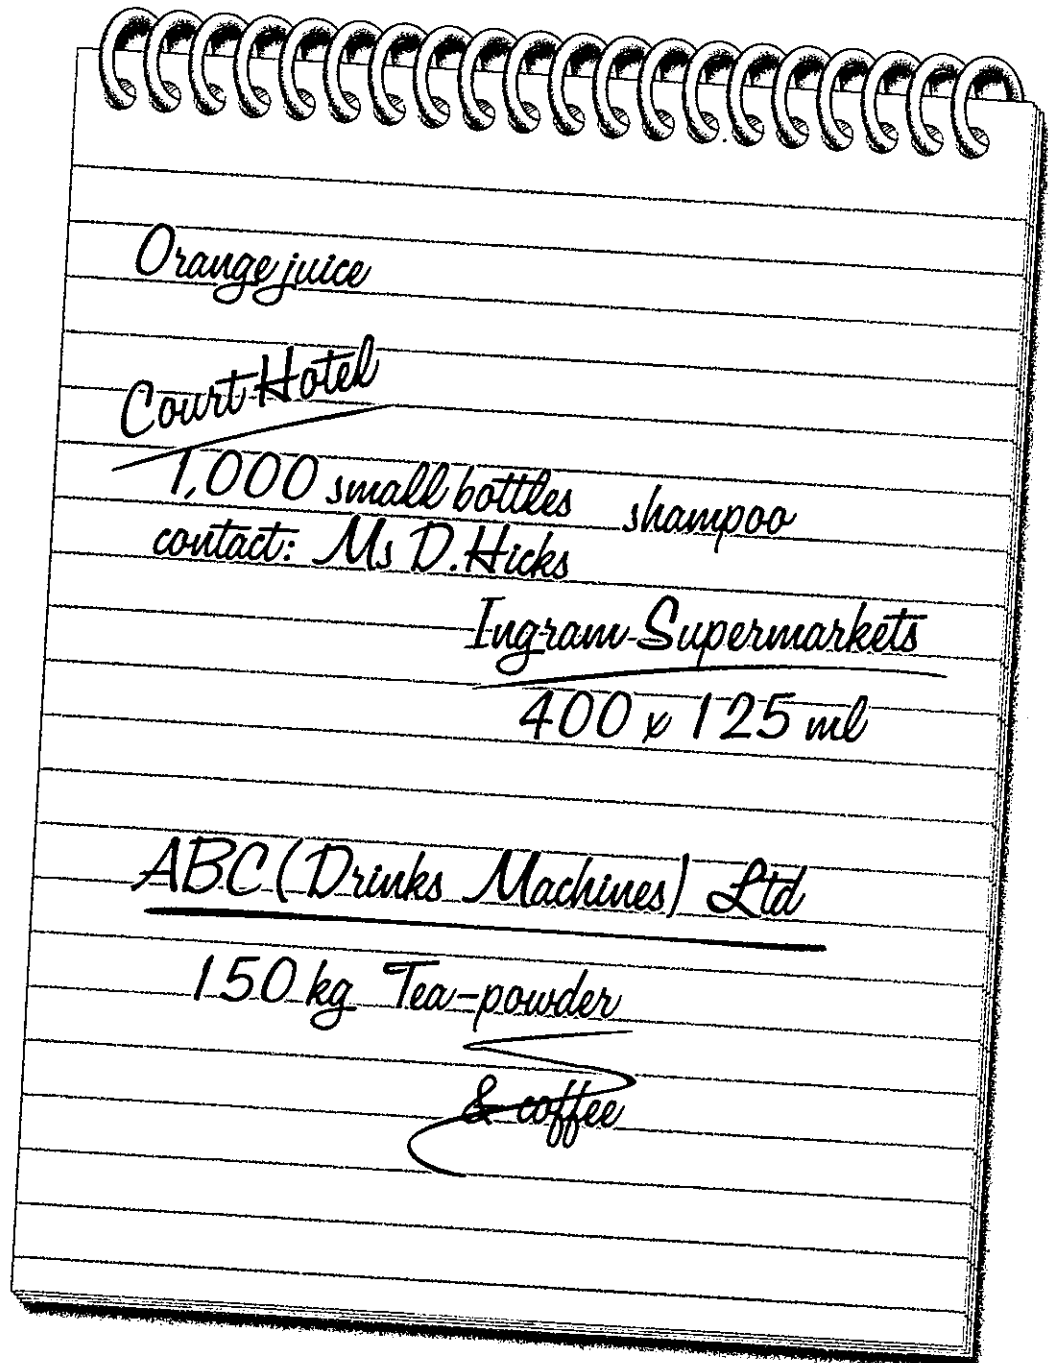 Orange juice
Court Hotel
1,000 small bottles shampoo
contact: Ms D. Hicks
Ingram Supermarkets
400 x 125 ml
ABC (Drinks Machines) Ltd
150 kg Tea-powder
& coffee